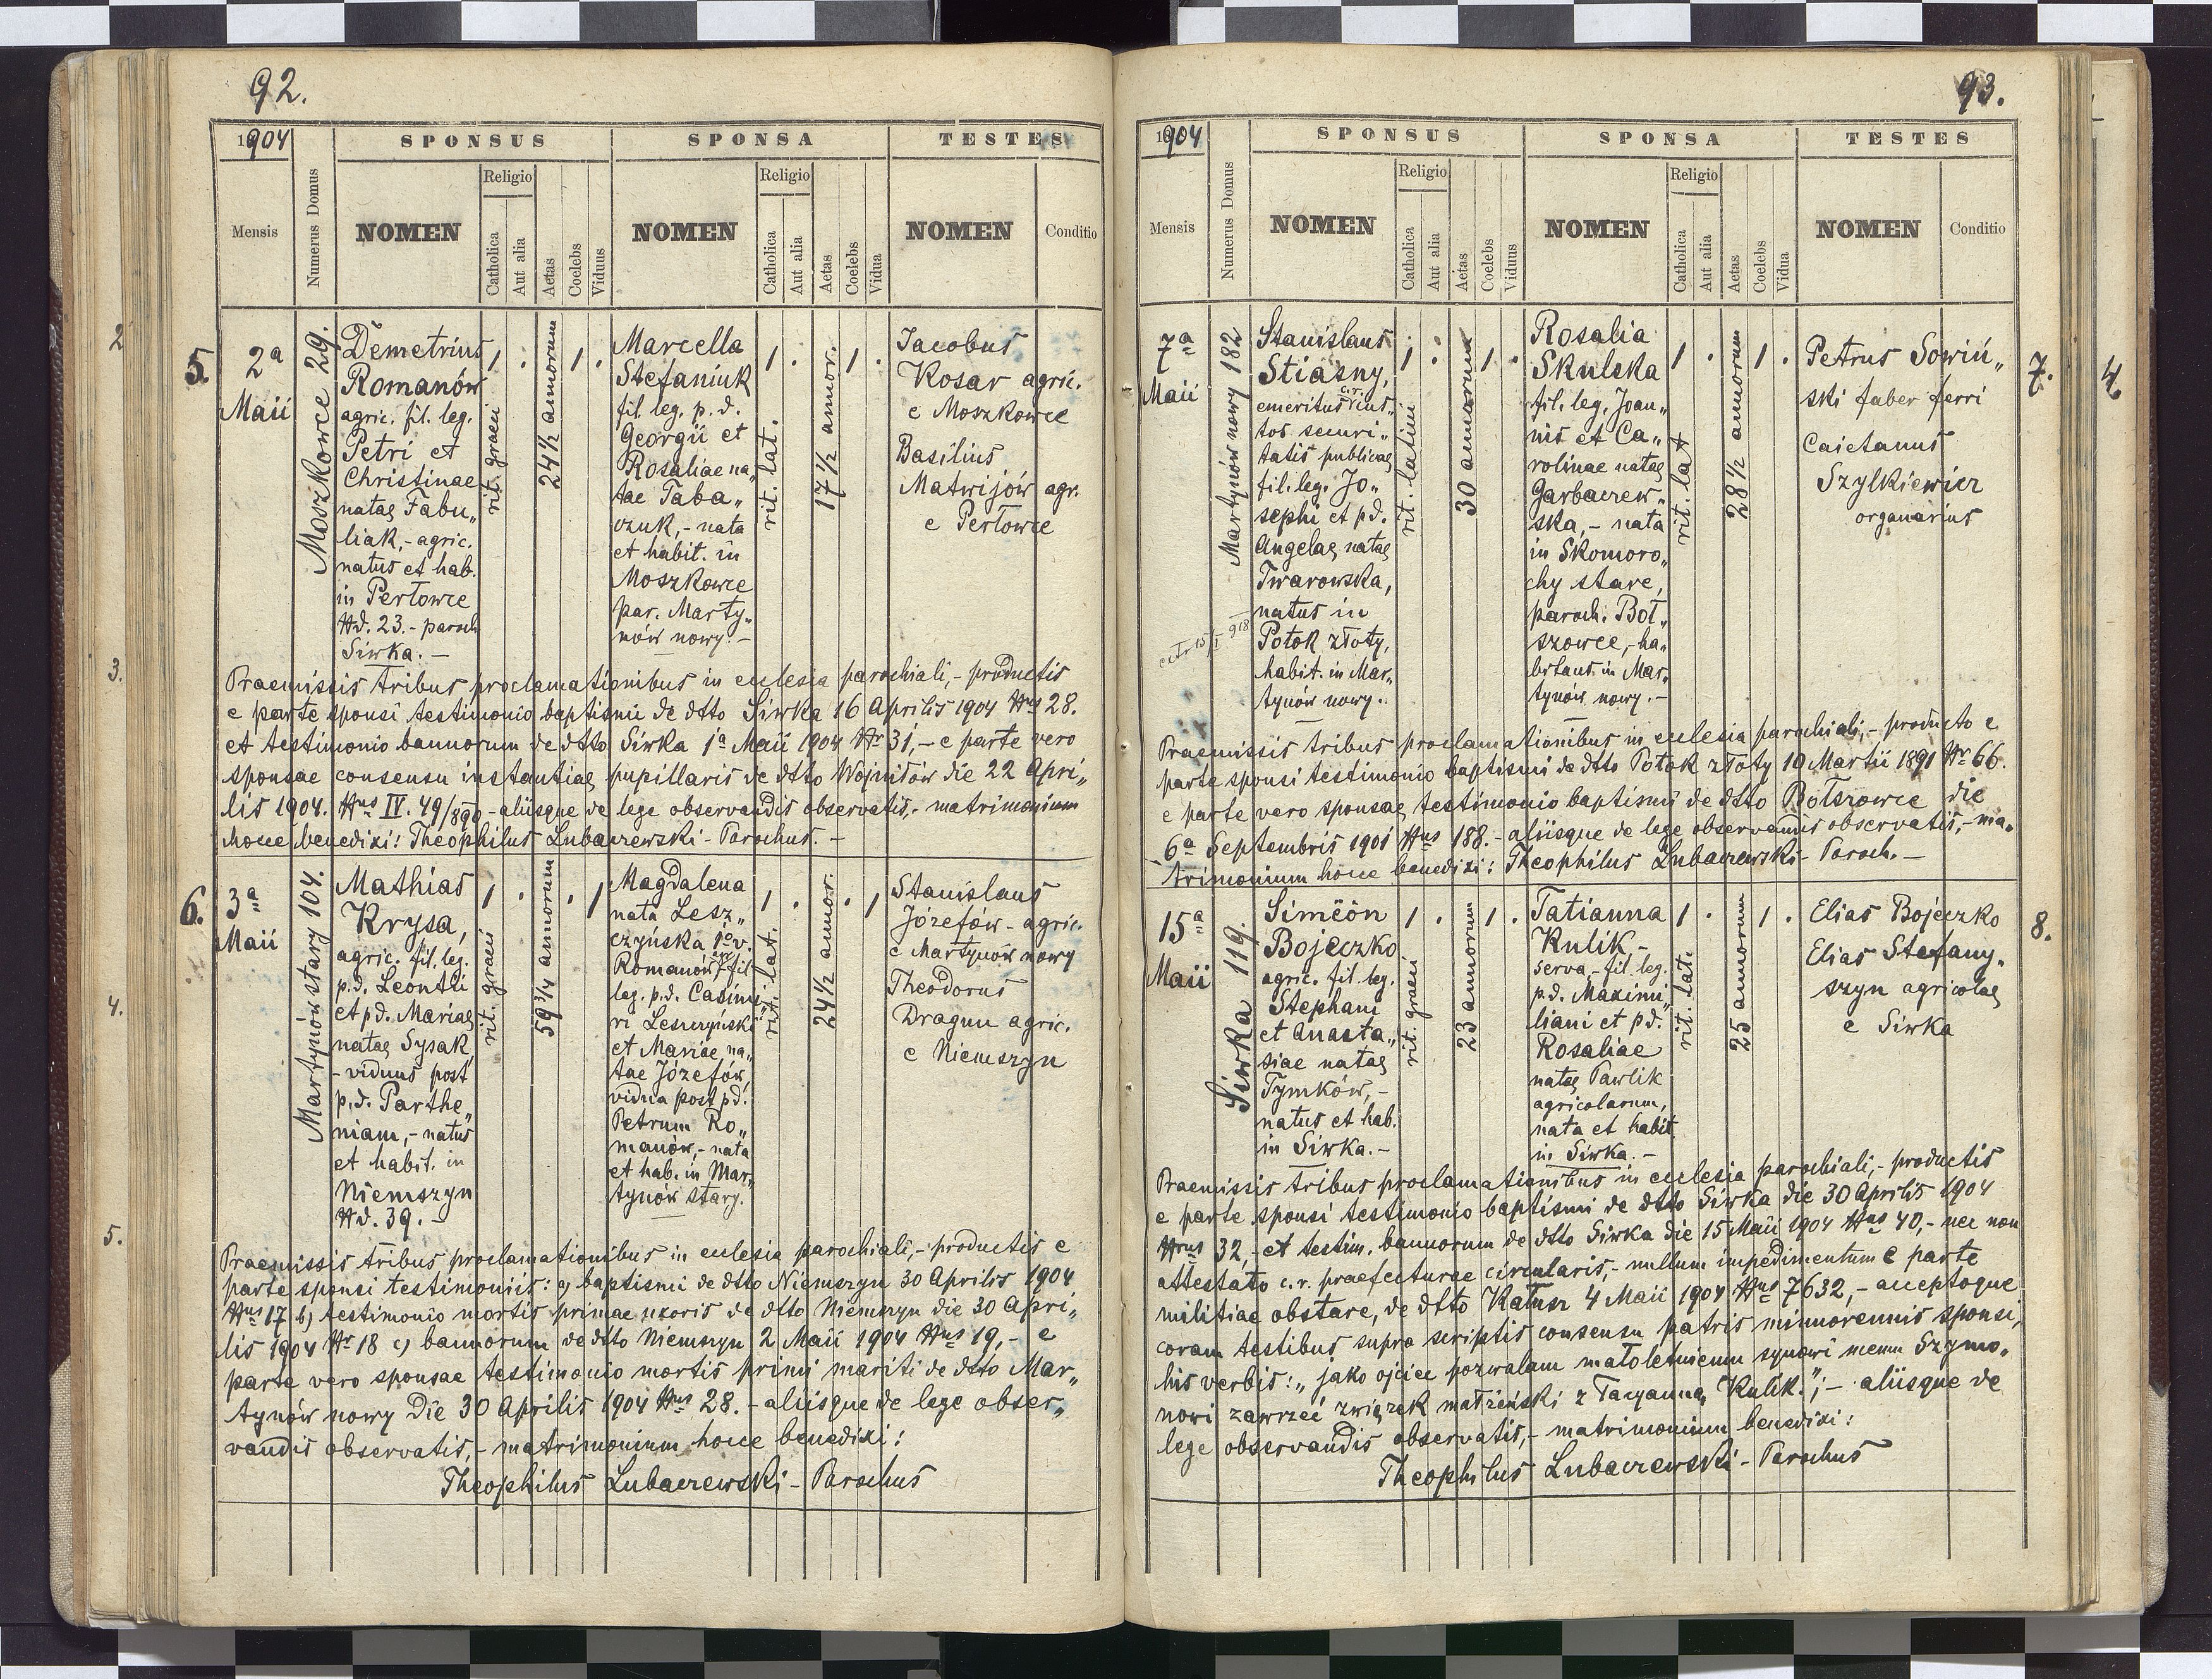 92.
1904
SPONSUS
SPONSA
TESTES
Mensis
Numerus Domus
NOMEN
Religio
Catholica
Aut alia
Aetas
Coelebs
Viduus
NOMEN
Religio
Catholica
Aut alia
Aetas
Coelebs
Vidua
NOMEN
Conditio
5.
2a
Maii
Moszkowce 29.
Demetrius
Romanów
agric. fil. leg.
Petri et
Christinae
natae Fabu„
liak,- agric.
natus et hab.
in Perłowce
Nd. 23.- paroch
Siwka. –
1
.
rit. graeci
24½ annorum
1
.
Marcella
Stefaniuk
fil. leg. p. d.
Georgii et
Rosaliae na„
tae Taba„
czuk,- nata
et habit. in
Moszkowce
par. Marty„
nów nowy. –
1
.
rit. lat.
17½ annor.
1
.
Jacobus
Kosar agric.
e Moszkowce
Basilius
Matwijów agr.
e Perłowce
Praemissis tribus proclamationibus in eclesia parochiali,- productis
e parte sponsi testimonio baptismi de dtto Siwka 16 Aprilis 1904 Nus 28.
et testimonio bannorum de dtto Siwka 1a Maii 1904 Nr 31,- e parte vero
sponsae consensu instantiae pupillaris de dtto Wojniłów die 22 Apri„
lis 1904. Nus IV. 49/890 - aliisque de lege observandis observatis,- matrimonium
hocce benedixi: Theophilus Lubaczewski - Parochus. –
6.
3a
Maii
Martynów stary 104.
Mathias
Krysa,
agric. fil. leg.
p.d. Leontii
et pd. Mariae
natae Sysak
- viduus post
p.d. Parthe„
niam,- natus
et habit. in
Niemszyn
Nd. 39. –
1
.
rit. graeci
59¾ annorum
.
1
Magdalena
nata Lesz„
czyńska 1o v.
Romanów fil
leg. p.d. Casimi„
ri Leszczyński
et Mariae na„
tae Józefów,
vidua post pd.
Petrum Ro„
manów,- nata
et hab. in Mar„
tynów stary.
1
.
rit. lat.
24½ annor.
.
1
Stanislaus
Józefów - agric.
e Martynów nowy
Theodorus
Dragun agric.
e Niemszyn
Praemissis tribus proclamationibus in eclesia parochiali,- productis e
parte sponsi testimoniis: a) baptismi de dtto Niemszyn 30 Aprilis 1904
Nus 17 b) testimonio mortis primae uxoris de dtto Niemszyn die 30 Apri„
lis 1904 Nr 18 c) bannorum de dtto Niemszyn 2 Maii 1904 Nus 19,- e
parte vero sponsae testimonio mortis primi mariti de dtto Mar„
tynów nowy die 30 Aprilis 1904 Nus 28. - aliisque de lege obser„
vandis observatis,- matrimonium hocce benedixi:
Theophilus Lubaczewski - Parochus
93.
1904
SPONSUS
SPONSA
TESTES
Mensis
Numerus Domus
NOMEN
Religio
Catholica
Aut alia
Aetas
Coelebs
Viduus
NOMEN
Religio
Catholica
Aut alia
Aetas
Coelebs
Vidua
NOMEN
Conditio
7a
Maii
Martynów nowy 182
Stanislaus
Stiasny,
emeritus c.r.
tos securi„
tatis publicae
fil. leg. Jo„
sephi et pd.
Angelae natae
Twarowska,
natus in
Potok złoty,
habit. in Mar„
tynów nowy. -
1
.
rit. latini
30 annorum
1
.
Rosalia
Skulska
fil. leg. Joan„
nis et Ca„
rolinae natae
Garbaczew„
ska,- nata
in Skomoro„
chy stare,
paroch. Boł„
szowce,- ha„
bitans in Mar„
tynów nowy. -
1
.
rit. lat
28½ annorum
1
.
Petrus Sowiń„
ski faber ferri
Caietanus
Szylkiewicz
organarius
7.
4.
Praemissis tribus proclamationibus in eclesia parochiali,- producto e
parte sponsi testimonio baptismi de dtto Potok złoty 10 Martii 1891 Nr 66.
e parte vero sponsae testimonio baptismi de dtto Bołszowce die
6a Septembris 1901 Nus 188. - aliisque de lege observandis observatis,- ma„
trimonium hocce benedixi: Theophilus Lubaczewski - Paroch. –
15a
Maii
Siwka 119.
Simeon
Bojeczko
agric. fil. leg.
Stephani
et Anasta„
siae natae
Tymków,-
natus et hab.
in Siwka. -
1
.
rit. graeci
23 annorum
1
.
Tatianna
Kulik -
serva,- fil. leg.
p.d. Maximi„
liani et pd.
Rosaliae
natae Pawlik
agricolarum,
nata et habit.
in Siwka. –
1
.
rit. lat.
25 annorum
1
.
Elias Bojeczko
Elias Stefany„
szyn agricolae
e Siwka
8.
Praemissis tribus proclamationibus in eclesia parochiali,- productis
e parte sponsi testimonio baptismi de dtto Siwka die 30 Aprilis 1904
Nrus 32,- et testim. bannorum de dtto Siwka die 15 Maii 1904 Nus 40,- nec non
attestato c.r. praefecturae circularis,- nullum impedimentum e parte
militiae obstare, de dtto Kałusz 4 Maii 1904 Nus 7632,- acceptoque
coram testibus supra scriptis consensu patris minorennis sponsi,
his verbis: „jako ojciec pozwalam małoletniemu synowi memu Szymo„
nowi zawrzeć związek małżeński z Tacyanną Kulik."; - aliisque de
lege observandis observatis,- matrimonium benedixi:
Theophilus Lubaczewski - Parochus
2
3.
4.
5.